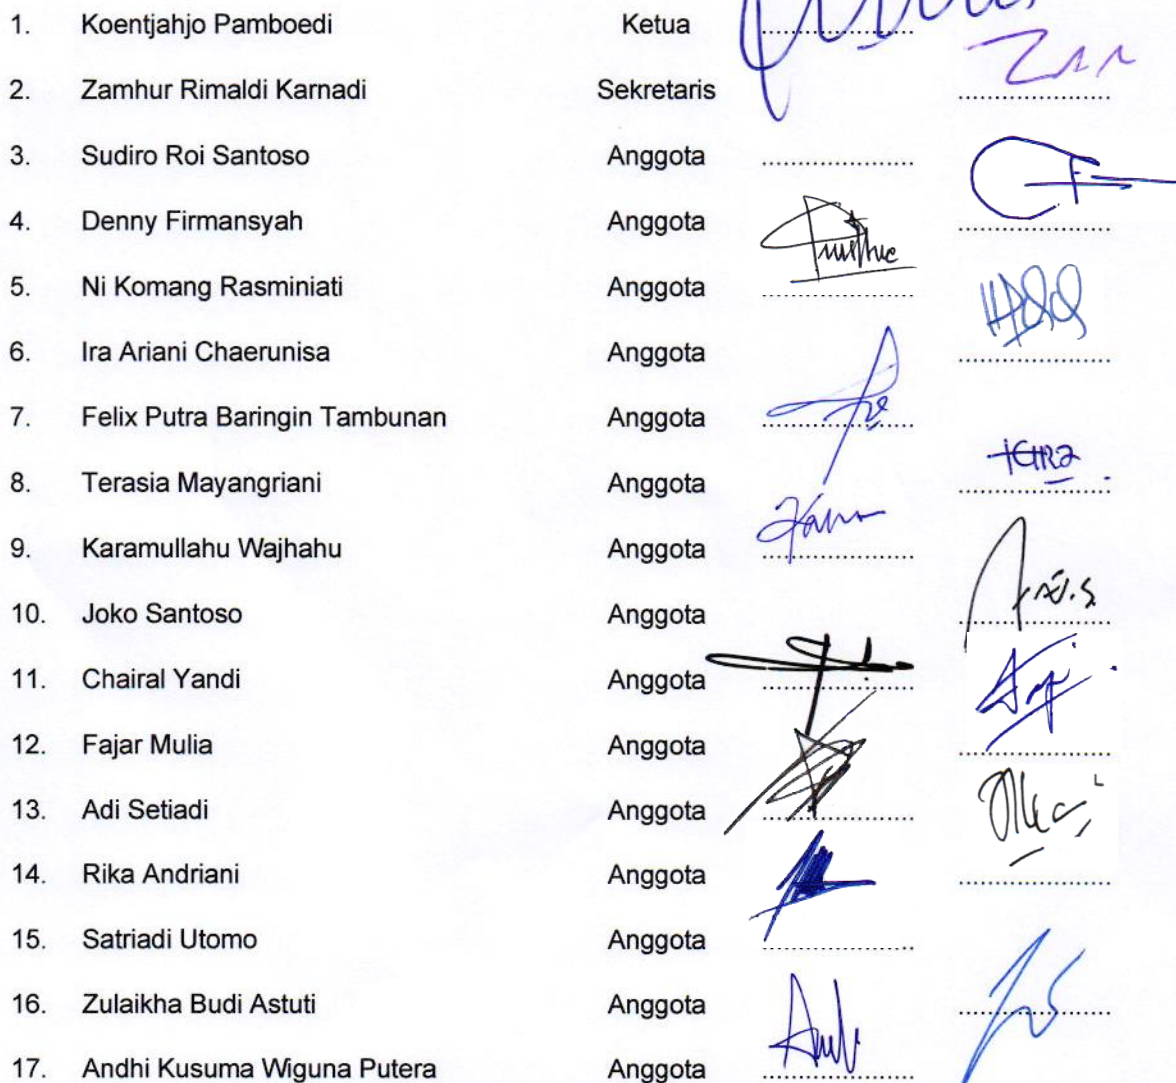 1. Koentjahjo Pamboedi Ketua ....................
2. Zamhur Rimaldi Karnadi Sekretaris ....................
3. Sudiro Roi Santoso Anggota ....................
4. Denny Firmansyah Anggota ....................
5. Ni Komang Rasminiati Anggota ....................
6. Ira Ariani Chaerunisa Anggota ....................
7. Felix Putra Baringin Tambunan Anggota ....................
8. Terasia Mayangriani Anggota ....................
9. Karamullahu Wajhahu Anggota ....................
10. Joko Santoso Anggota ....................
11. Chairal Yandi Anggota ....................
12. Fajar Mulia Anggota ....................
13. Adi Setiadi Anggota ....................
14. Rika Andriani Anggota ....................
15. Satriadi Utomo Anggota ....................
16. Zulaikha Budi Astuti Anggota ....................
17. Andhi Kusuma Wiguna Putera Anggota